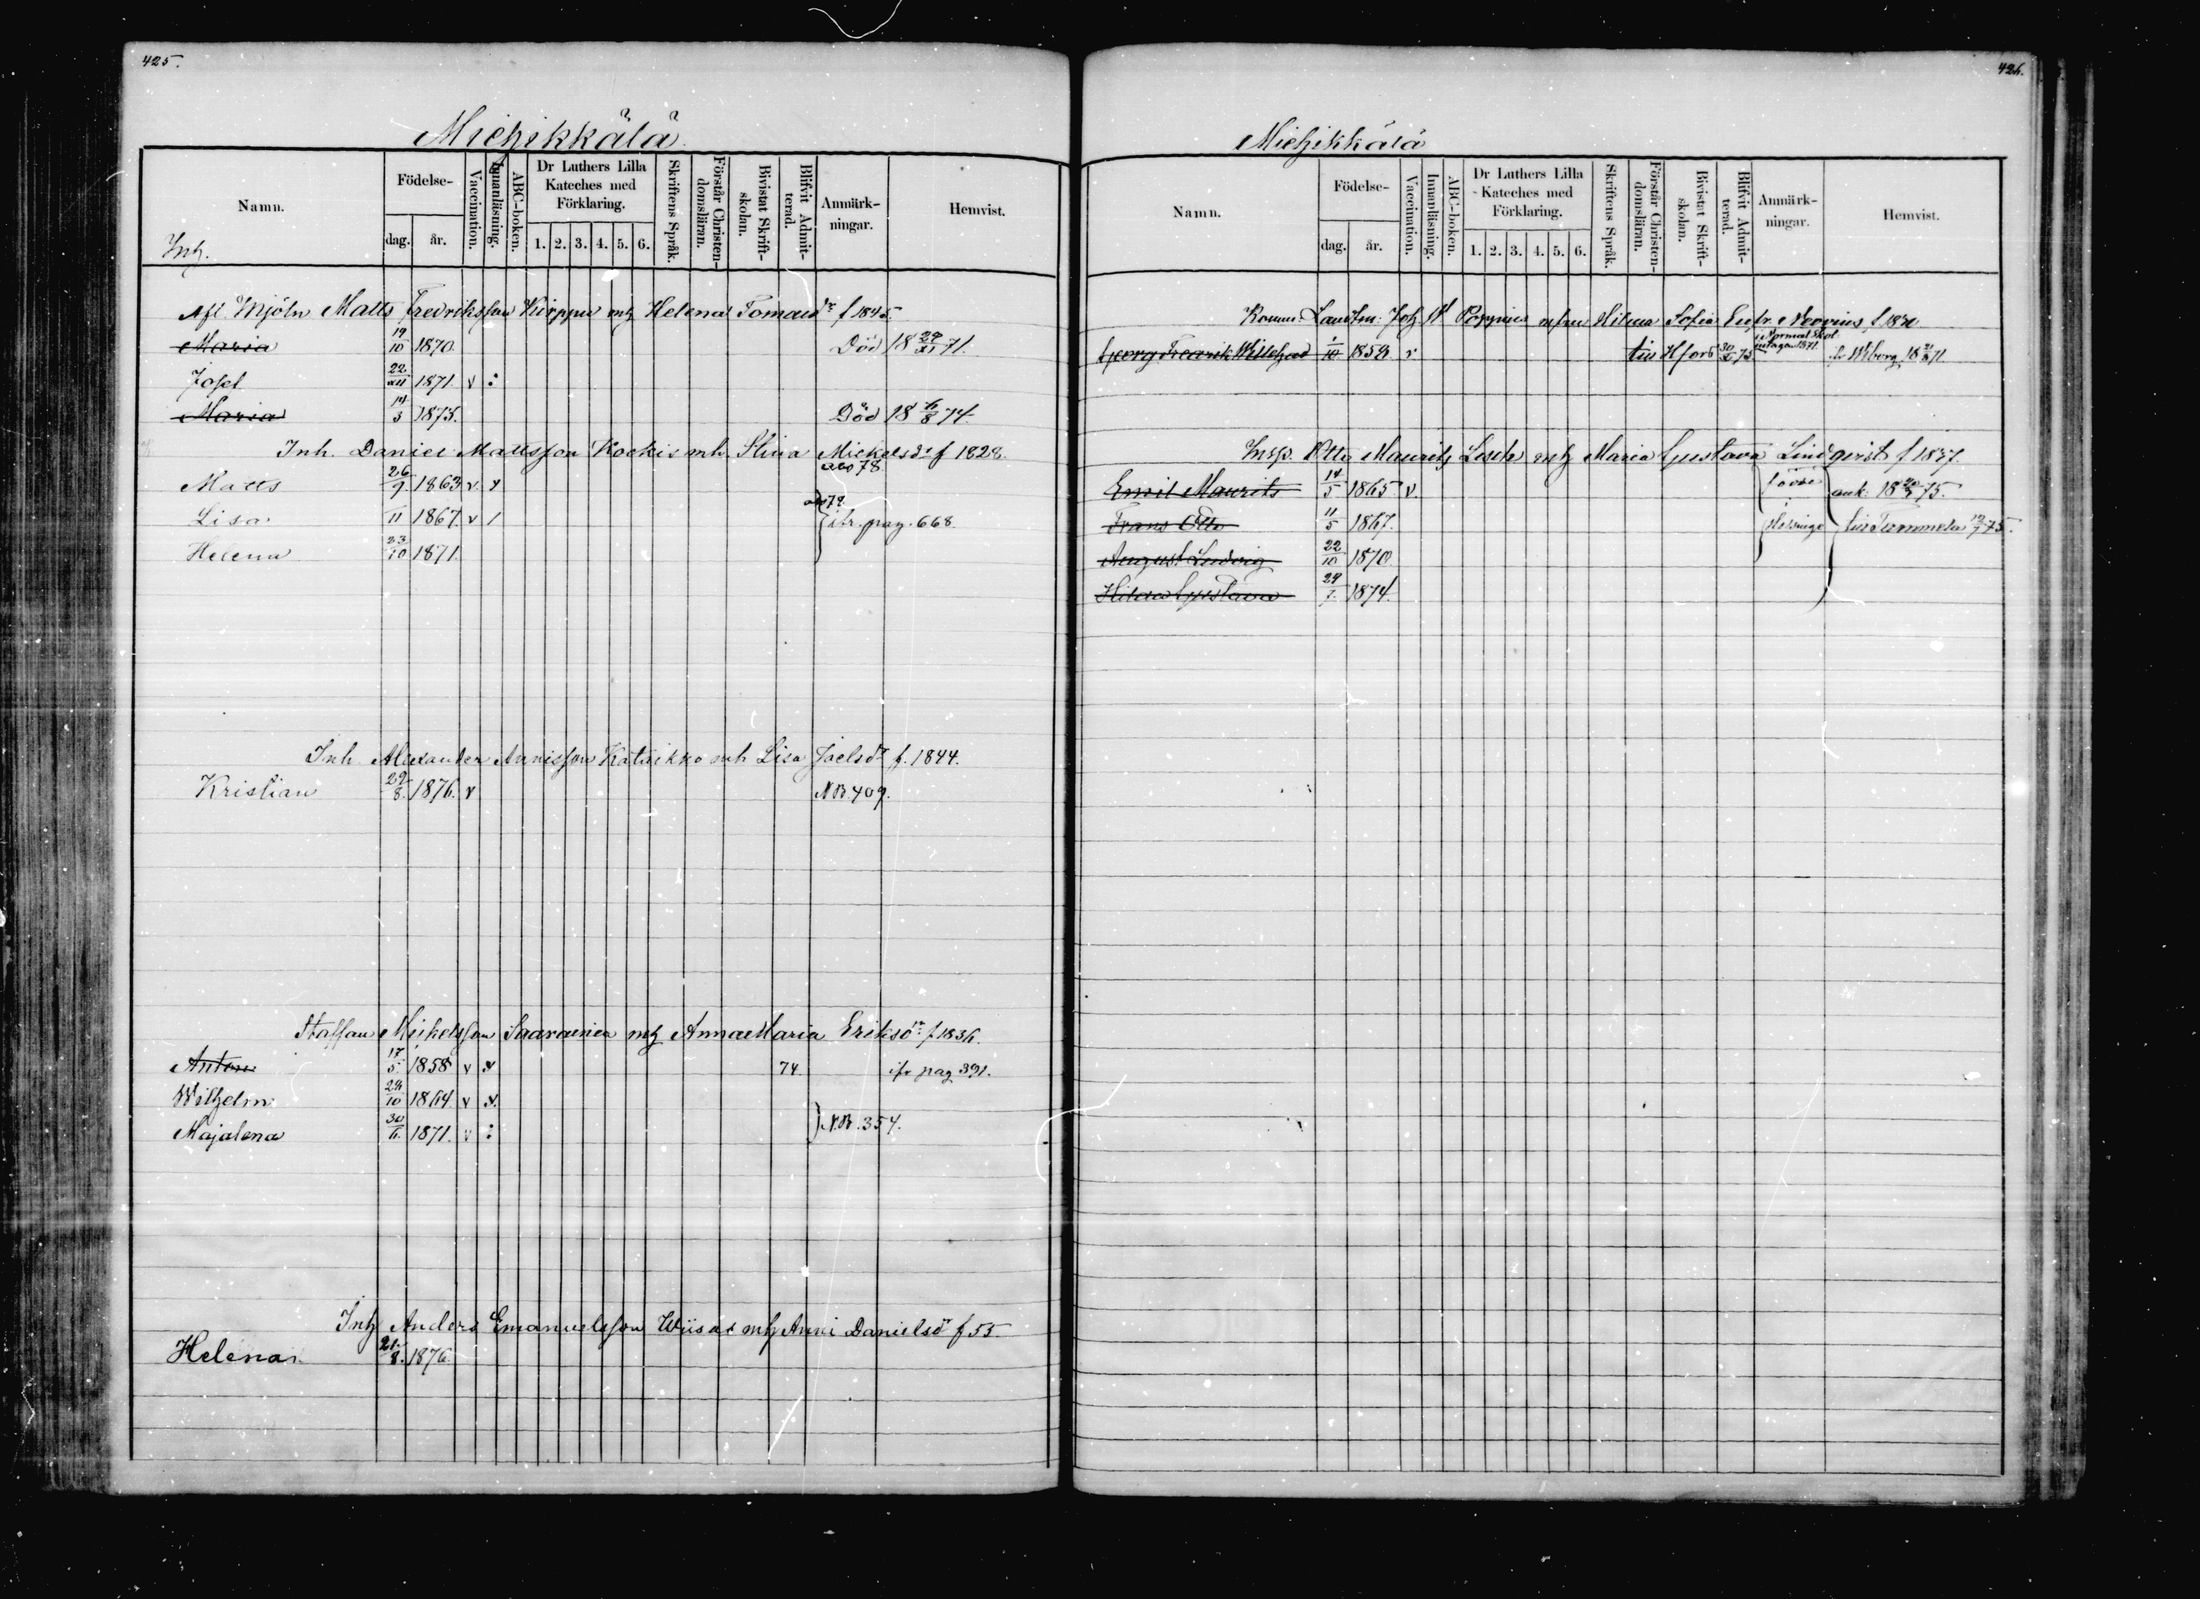 425.
Miehikkälä
Namn.
Födelse-
dag.
år.
Vaccination.
Innanläsning.
ABC-boken.
Dr Luthers Lilla Kateches med Förklaring.
1. 2. 3. 4. 5. 6.
Skriftens Språk.
Förstår Christen-domsläran.
Bivistat Skrift-skolan.
Blifvit Admit-terad.
Anmärk-ningar.
Hemvist.
Inh.
Afl. Mjöln Matts Fredriksson Kirppu mh Helena Tomasdr f 1845.
Maria 19/10 1870. Död 18 29/XI 71.
Josef 22/XII 1871. v :
Maria 14/3 1873. Död 18 6/8 74.
Inh. Daniel Mattsson Kockis mh. Stina Mickelsdr f 1828.
Matts 26/9 1863 v. x 78.
Lisa /11 1867. v / itr. pag. 668.
Helena 23/10 1871.
Inh Alexander Annisson Kataikko mh Lisa Joelsdr f. 1844.
Kristian 29/8. 1876. v NB. 409.
Staffan Mickelsson Saarainen mh Anna Maria Eriksdr f 1836.
Anton 17/5 1858 v x 74. ifr pag 391.
Wilhelm 24/10 1864. v x.
Majalena 30/6. 1871. v : N.B. 354.
Inh Anders Emanuelsson Wiisas mh Anni Danielsdr f 55.
Helena 21/8. 1876.
426.
Miehikkälä
Namn.
Födelse-
dag.
år.
Vaccination.
Innanläsning.
ABC-boken.
Dr Luthers Lilla Kateches med Förklaring.
1. 2. 3. 4. 5. 6.
Skriftens Språk.
Förstår Christen-domsläran.
Bivistat Skrift-skolan.
Blifvit Admit-terad.
Anmärk-ningar.
Hemvist.
Länsm. Joh Poppius Hilma Sofia Neovius f 18
Georg Fredrik Willehad 1/10 1859. v till Hfors 73 i Normal Skol. intagen 1871. fr Wiborg 18 71
Insp. Otto Mauritz Lesch mh Maria Gustava Lindqvist f 1837.
Emil Maurits 14/5 1865. v. ank: 18 75.
Frans Otto 11/5 1867. till Tammela 75.
August Ludvig 22/10 1870
Hilma Gustava 29/7. 1874.